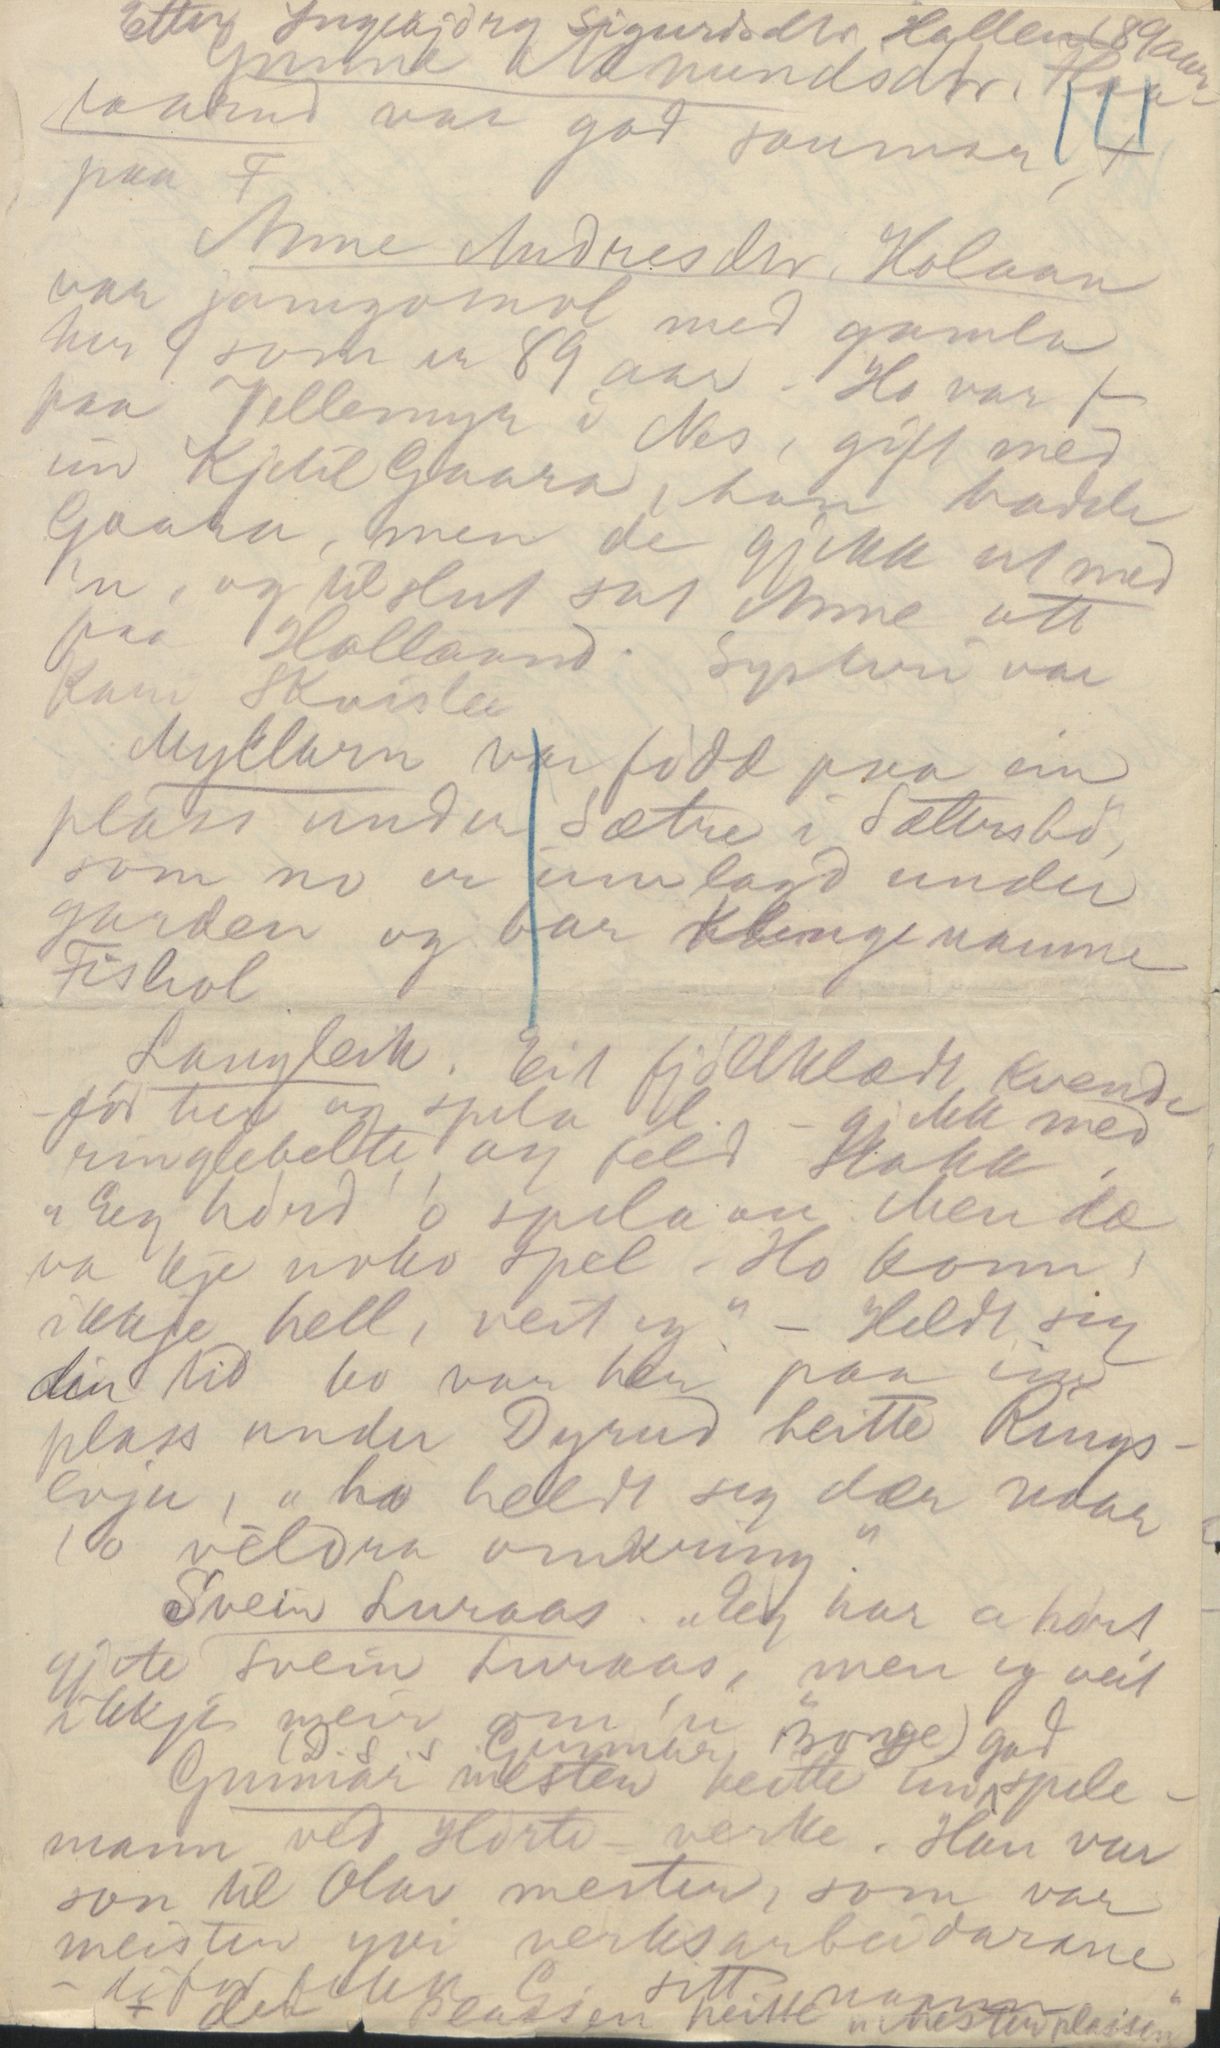 Etter Ingebjörg Sigurdsdtr. Hallen (89 aar
Gunne Aamundsdtr. Haa-
taarud var god saumar, +
paa F
141
Anne Andresdtr. Holaan
var jamgomol med gamla
her, som er 89 aar. Ho var f
paa Vellemyr i Nes, gift med
ein Kjetil Gaara, han hadde
Gaara, men de gjekk ut med
'n, og til slut sat Anne att
paa Hollaand. Syster var
Kari Skvisla
Myllarn var född paa ein
plass under Sætre i Sættersbö,
som no er innlagd under
garden og bar klengenamne
Fishol
Langleik. Eit fjöllklædt kvende
för her og spela l. - gjekk med
ringlebelte, og feld Stakk,
"Eg hörd 'o spela an. Men dæ
va kje noko spel - Ho konn,
ikkje hell, veit eg" - Heldt seg
den tid ho var her paa ein
plass under Dyrud heitte Rings-
evju, "ho heldt seg dær naar
'o veldra omkring".
Svein Luraas. "Eg har a hört
gjete Svein Luraas, men eg veit
ikkje meir om 'n"
(D.s.s. Gunnar Borge) god
Gunnar mester heitte ein spele-
mann ved Hörte-verke. Han var
son til Olav mester, som var
meister yvi verksarbeidarane
- difor fekk G. sitt namn
+ der plassen heitte "Mesterplassen"